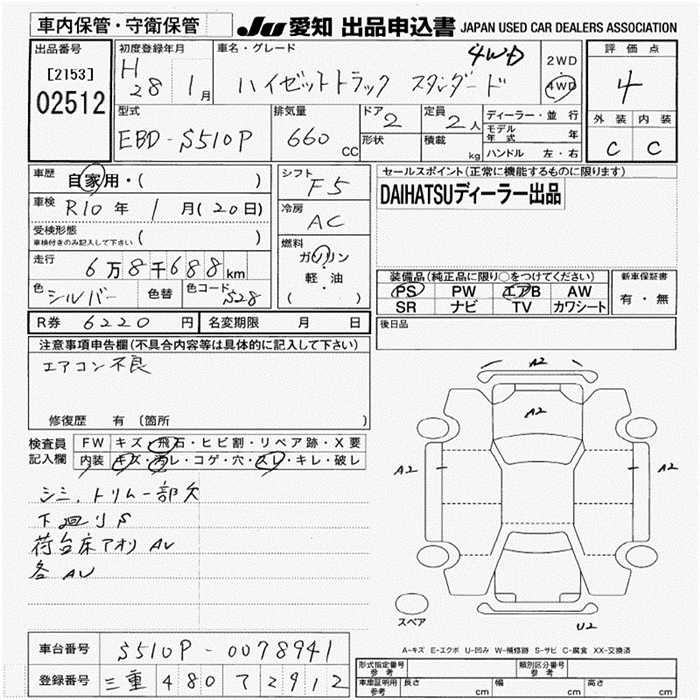 車内保管・守衛保管
JU 愛知 出品申込書 JAPAN USED CAR DEALERS ASSOCIATION
出品番号
[2153]
02512
初度登録年月
H28 1月
車名・グレード
ハイゼットトラック スタンダード 4WD
2WD
4WD
評価点
4
外装 内装
C C
型式
EBD-S510P
排気量
660 CC
ドア 2
形状
定員 2人
積載 kg
ディーラー・並行
モデル年式 年
ハンドル 左・右
車歴 自家用・( )
車検 R10年 1月(20日)
受検形態
車検付きのみ記入して下さい ( )
走行 6万8千688km
色 シルバー 色替 色コード S28
シフト F5
冷房 AC
燃料
ガソリン
軽・油
( )
セールスポイント(正常に機能するものに限ります)
DAIHATSUディーラー出品
装備品(純正品に限り○をつけてください)
PS PW エアB AW
SR ナビ TV カワシート
新車保証書
有・無
R券 6220円 名変期限 月 日
後日品
注意事項申告欄(不具合内容等は具体的に記入して下さい)
エアコン不良
修復歴 有(箇所 )
検査員記入欄
FW キズ・飛石・ヒビ割・リペア跡・X要
内装 キズ・汚レ・コゲ・穴・スレ・キレ・破レ
シミ、トリム一部欠
下廻りS
荷台床アオリAU
各AU
A2
A2
A2
A2
U2
スペア
A-キズ E-エクボ U-凹み W-補修跡 S-サビ C-腐食 XX-交換済
車台番号 S510P-0078941
登録番号 三重 480 ア 2912
形式指定番号 参考
類別区分番号 参考
車庫証明用 参考 長さ cm 幅 cm 高さ cm